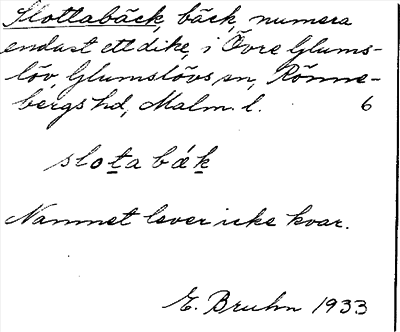 Slottabäck, bäck, numera
endast ett dike, i Övre Glums-
löv, Glumslövs sn, Rönne-
bergs hd, Malm. l. 6
slotabæk
Namnet lever icke kvar.
E. Bruhn 1933